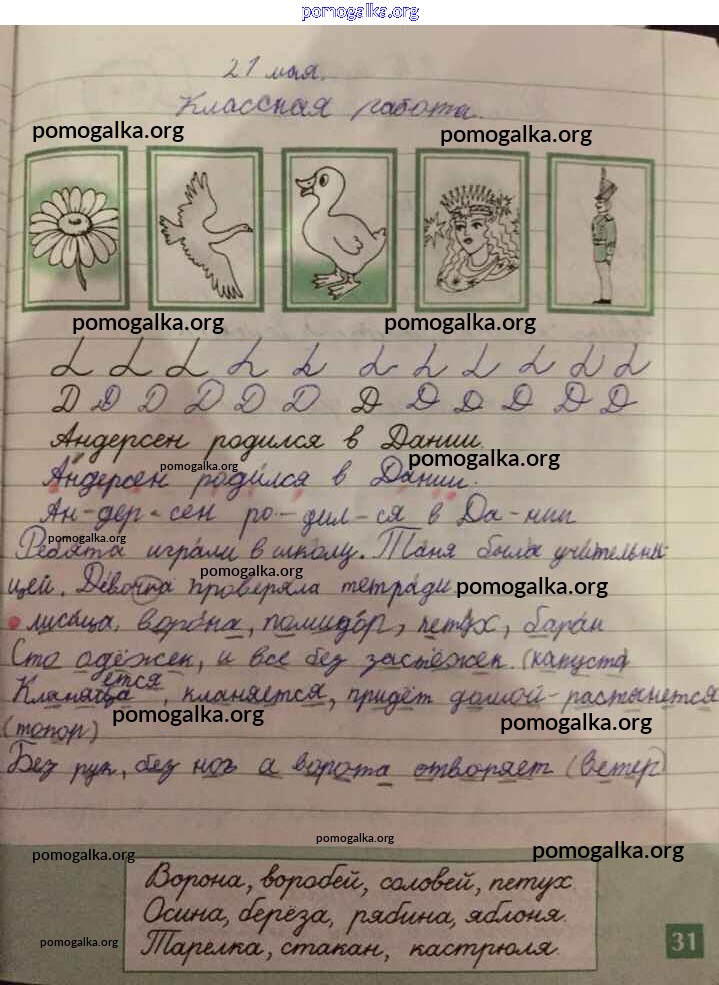 pomogalka.org
21 мая.
Классная работа.
pomogalka.org pomogalka.org
pomogalka.org pomogalka.org
L L L L L L L L L L L
Д Д Д Д Д Д Д Д Д Д Д Д
Андерсен родился в Дании.
pomogalka.org
Андерсен родился в Дании.
pomogalka.org
Ан-дер-сен ро-дил-ся в Да-нии
pomogalka.org
Ребята играли в школу. Таня была учительни-
pomogalka.org
цей. Девочка проверяла тетради
pomogalka.org
лисица, ворона, помидор, петух, баран
Сто одёжек, и все без застёжек. (капуста)
ется
Кланяца, кланяется, придёт домой - растянется
pomogalka.org pomogalka.org
(топор)
Без рук, без ног а ворота отворяет (ветер)
pomogalka.org
pomogalka.org pomogalka.org
Ворона, воробей, соловей, петух.
Осина, берёза, рябина, яблоня.
Тарелка, стакан, кастрюля.
pomogalka.org
31
pomogalka.org